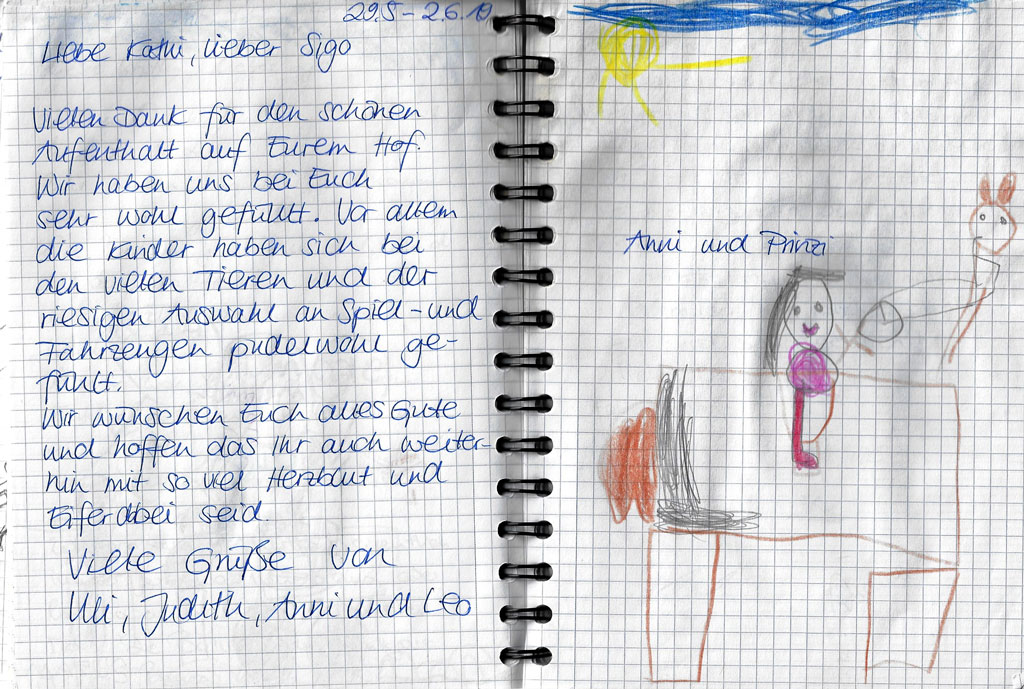 29.5 - 2.6.19
Liebe Kathi, lieber Sigo
Vielen Dank für den schönen
Aufenthalt auf Eurem Hof.
Wir haben uns bei Euch
sehr wohl gefühlt. Vor allem
die Kinder haben sich bei
den vielen Tieren und der
riesigen Auswahl an Spiel- und
Fahrzeugen pudelwohl ge-
fühlt.
Wir wünschen Euch alles Gute
und hoffen das Ihr auch weiter-
hin mit so viel Herzblut und
Eifer dabei seid.
Viele Grüße von
Uli, Judith, Anni und Leo
Anni und Prinzi